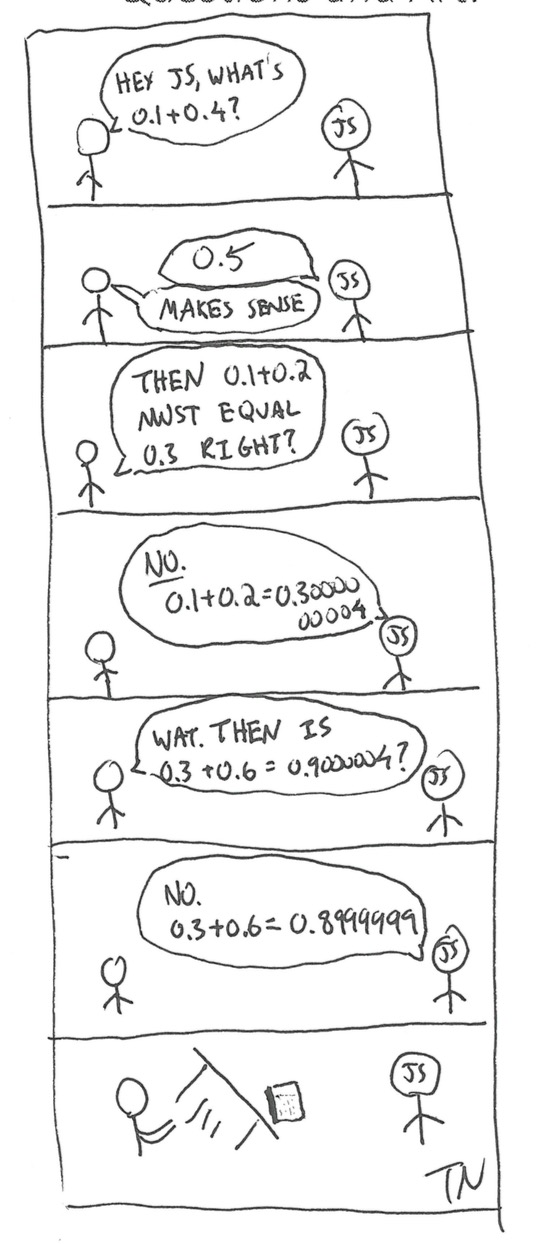 HEY JS, WHAT'S
0.1+0.4?
JS
0.5
JS
MAKES SENSE
THEN 0.1+0.2
MUST EQUAL
0.3 RIGHT?
JS
NO.
0.1+0.2=0.30000
00004
JS
WAT. THEN IS
0.3+0.6=0.9000004?
JS
NO.
0.3+0.6=0.8999999
JS
JS
TN